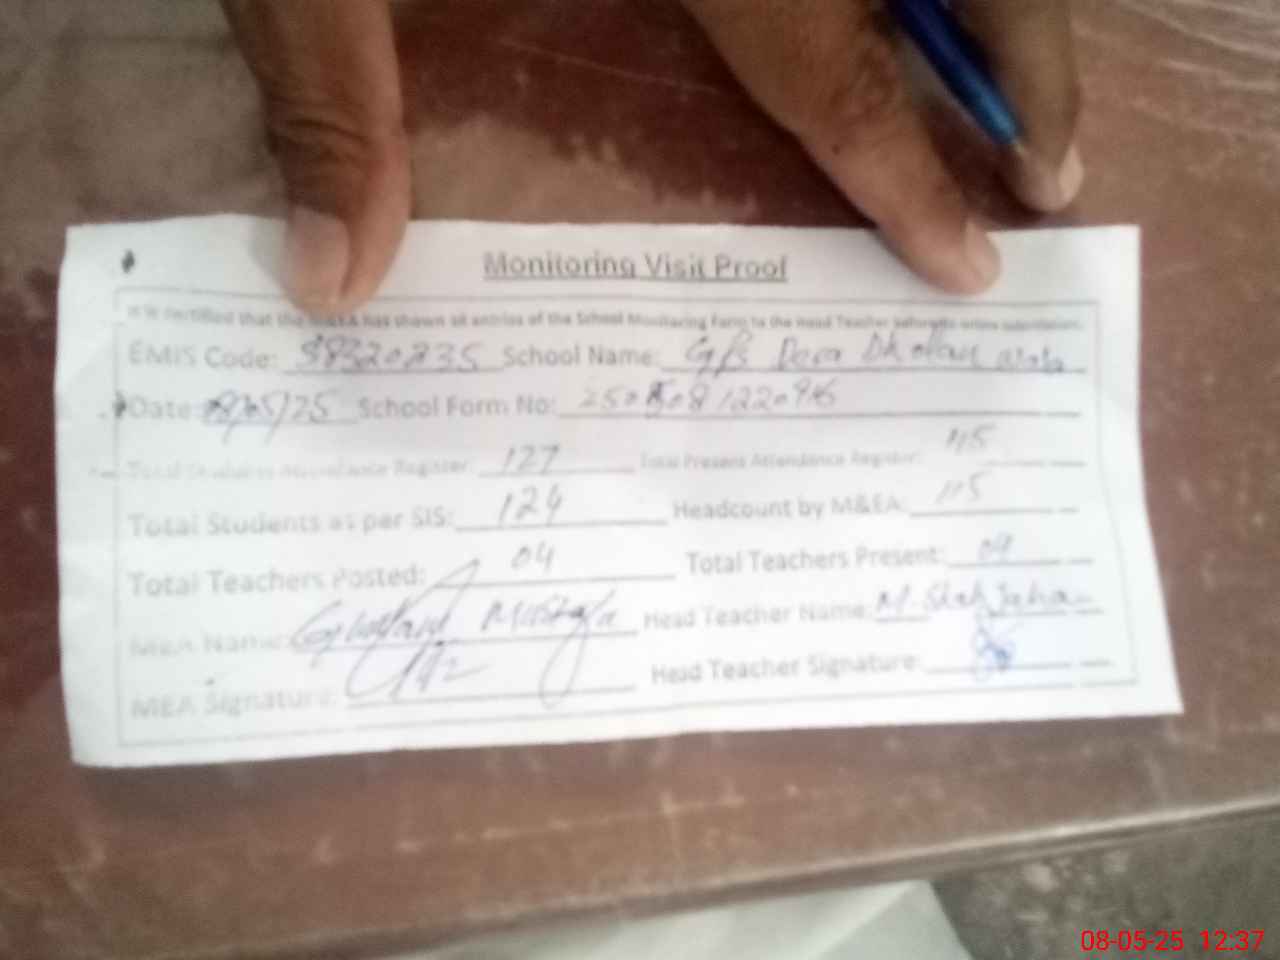 Monitoring Visit Proof
It is certified that the M&EA has shown all entries of the School Monitoring Form to the Head Teacher before its online submission.
EMIS Code: 38320235 School Name: GPS Dera
Date: 8/05/25 School Form No: 250508122096
Total Students Attendance Register: 127 Total Present Attendance Register: 115
Total Students as per SIS: 124 Headcount by M&EA: 115
Total Teachers Posted: 04 Total Teachers Present: 04
MEA Name: Ghulam Mustafa Head Teacher Name: M. Shah Jahan
MEA Signature: Head Teacher Signature:
08-05-25 12:37